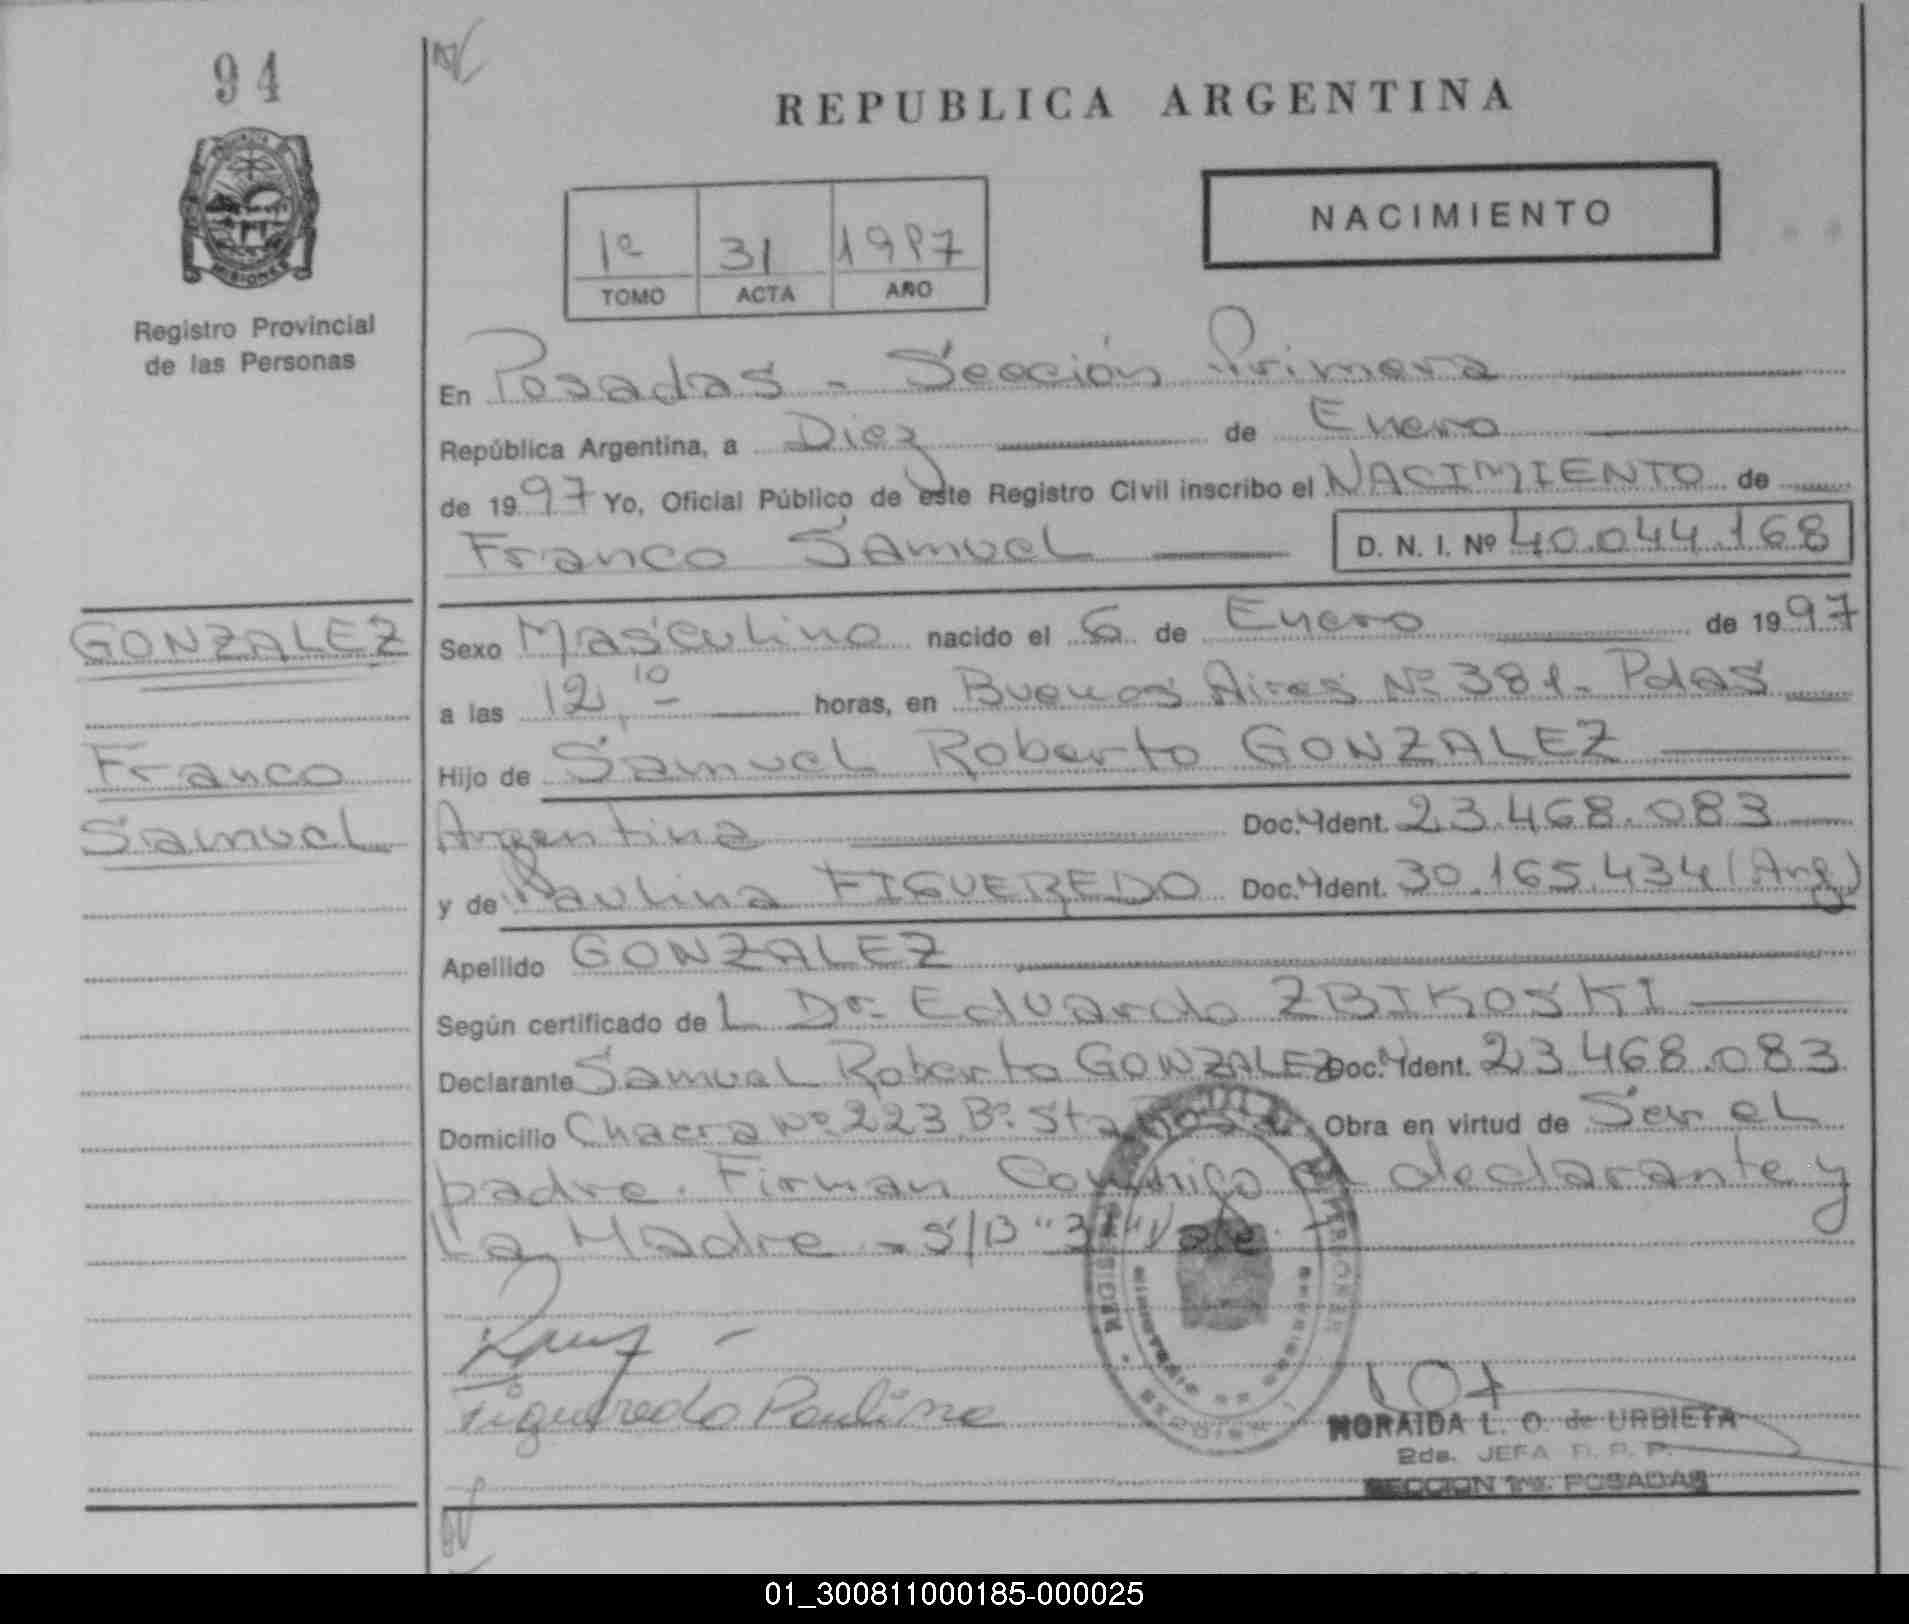 94
REPUBLICA ARGENTINA
NACIMIENTO
1º 31 1997
TOMO ACTA AÑO
MISIONES
Registro Provincial
de las Personas
En Posadas - Sección Primera
República Argentina, a Diez de Enero
de 1997 Yo, Oficial Público de este Registro Civil inscribo el NACIMIENTO de
Franco Samuel D. N. I. Nº 40.044.168
GONZALEZ
Franco
Samuel
Sexo Masculino nacido el 6 de Enero de 1997
a las 12,10 horas, en Buenos Aires Nº 381- Pdas
Hijo de Samuel Roberto GONZALEZ
Argentina Doc. Ident. 23.468.083
y de Paulina FIGUEREDO Doc. Ident. 30.165.434 (Arg)
Apellido GONZALEZ
Según certificado de L Dr. Eduardo ZBIKOSKI
Declarante Samuel Roberto GONZALEZ Doc. Ident. 23.468.083
Domicilio Chacra Nº 223 Bº Sta Rosa Obra en virtud de Ser el
padre. Firman Conmigo el declarante y
La Madre - S/B "31" Vale.
Figueredo Paulina
NORAIDA L. O. de URBIETA
2da. JEFA R. P. P.
SECCION 1ra. POSADAS
01_300811000185-000025